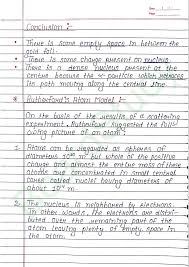 Conclusion :-
• There is some empty space in between the
gold foil.
• There is some charge present on nucleus.
• There is a dense nucleus present at the
centre because the α-particle which
its path moving along the central line.
* Rutherford's Atom Model :-
On the basis of the results of α scattering
experiment, Rutherford suggested the foll-
owing picture of an atom:
1. Atom can be regarded as spheres of
diameters 10 m but whole of the positive
charge and almost the entire mass of these
atoms are concentrated in small central
cores called nuclei having diameters of
about 10 m.
2. The nucleus is neighbored by electrons.
In other words, the electrons are distri-
buted over the remaining part of the
atom leaving plenty of empty space in
the atom.